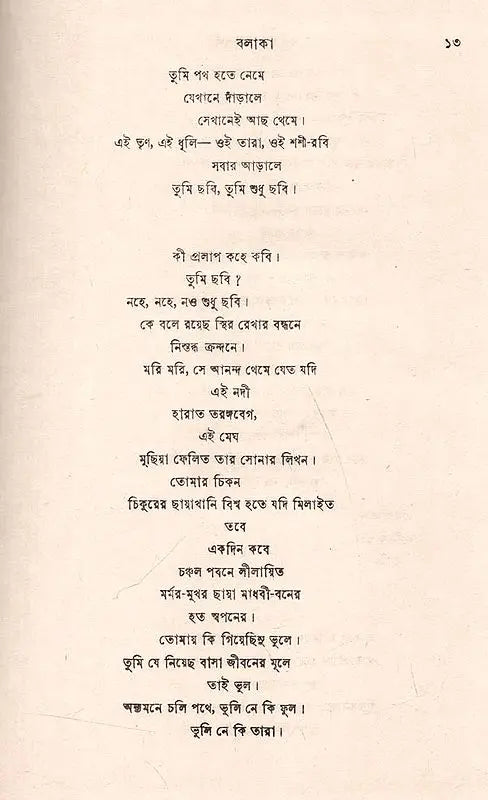 বলাকা ১৩
তুমি পথ হতে নেমে
যেখানে দাঁড়ালে
সেখানেই আছ থেমে।
এই তৃণ, এই ধূলি— ওই তারা, ওই শশী-রবি
সবার আড়ালে
তুমি ছবি, তুমি শুধু ছবি।
কী প্রলাপ কহে কবি।
তুমি ছবি ?
নহে, নহে, নও শুধু ছবি।
কে বলে রয়েছ স্থির রেখার বন্ধনে
নিস্তব্ধ ক্রন্দনে।
মরি মরি, সে আনন্দ থেমে যেত যদি
এই নদী
হারাত তরঙ্গবেগ,
এই মেঘ
মুছিয়া ফেলিত তার সোনার লিখন।
তোমার চিকন
চিকুরের ছায়াখানি বিশ্ব হতে যদি মিলাইত
তবে
একদিন কবে
চঞ্চল পবনে লীলায়িত
মর্মর-মুখর ছায়া মাধবী-বনের
হত স্বপনের।
তোমায় কি গিয়েছিনু ভুলে।
তুমি যে নিয়েছ বাসা জীবনের মূলে
তাই ভুল।
অন্যমনে চলি পথে, ভুলি নে কি ফুল।
ভুলি নে কি তারা।